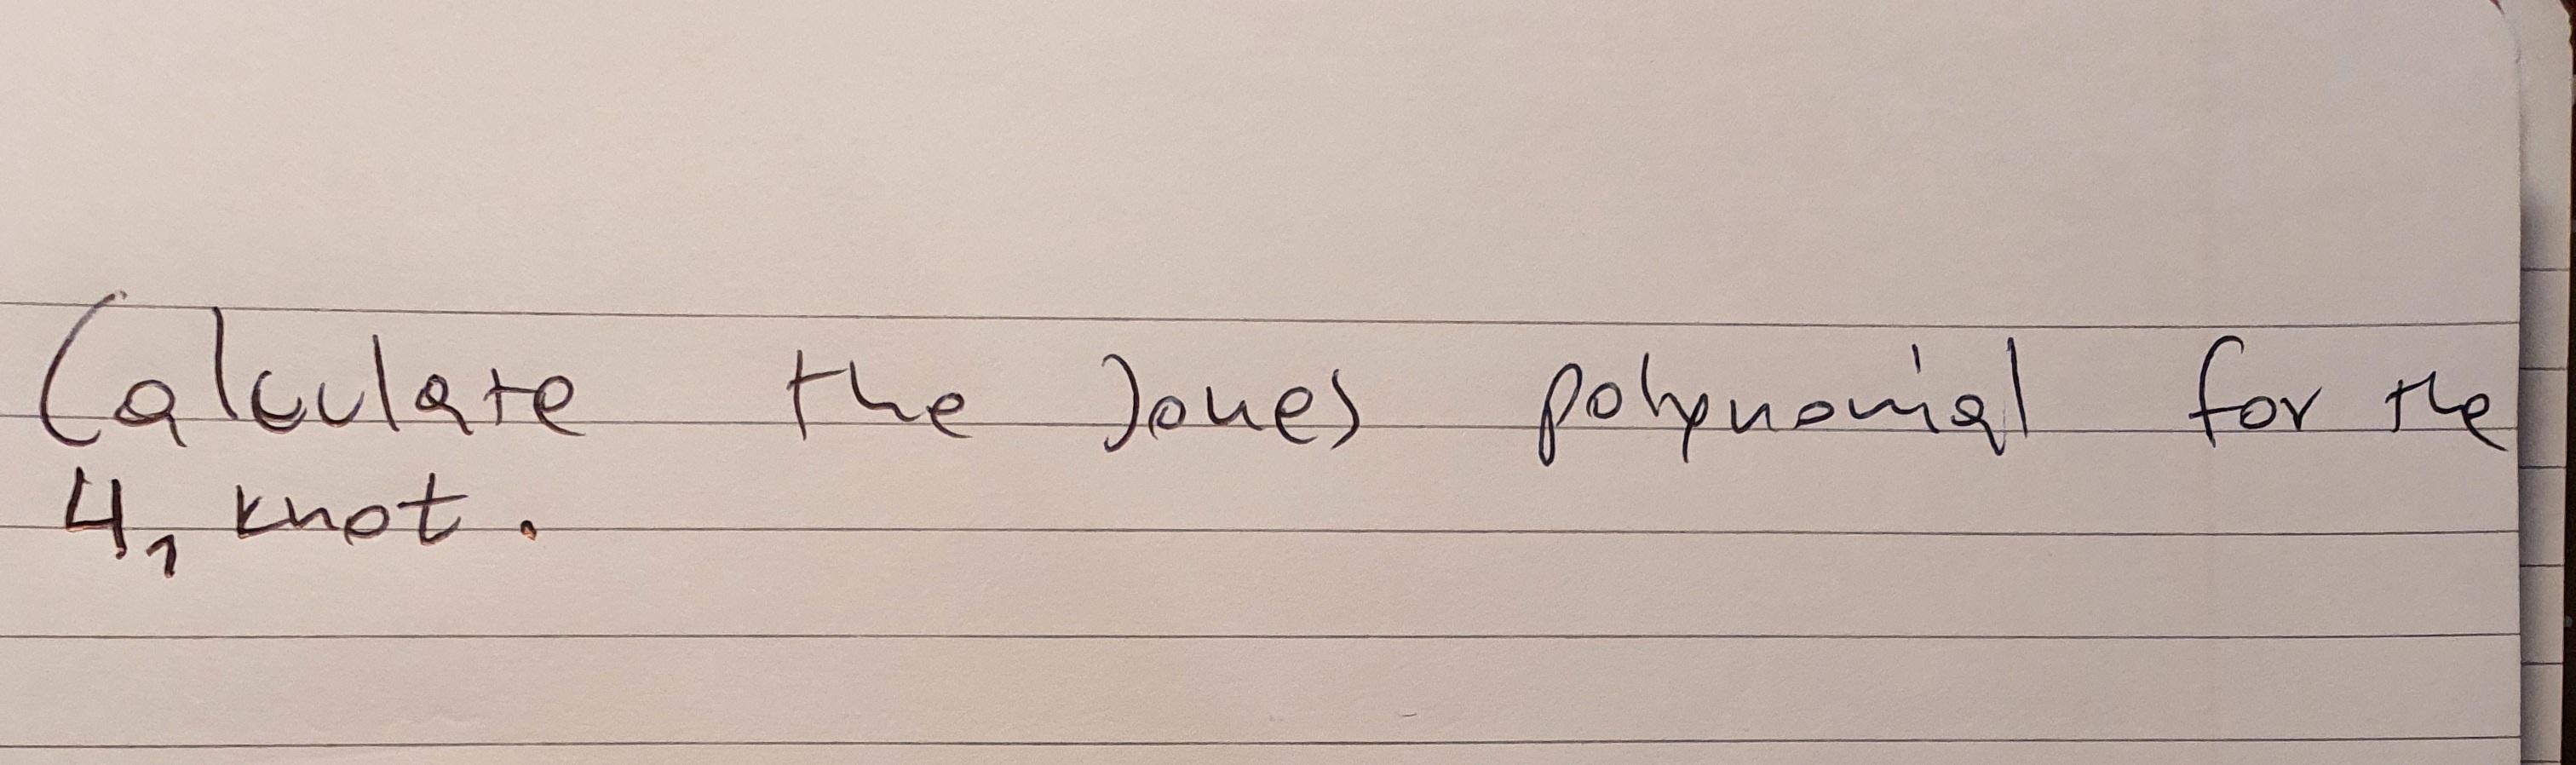 Calculate the Jones polynomial for the
4₁ knot.